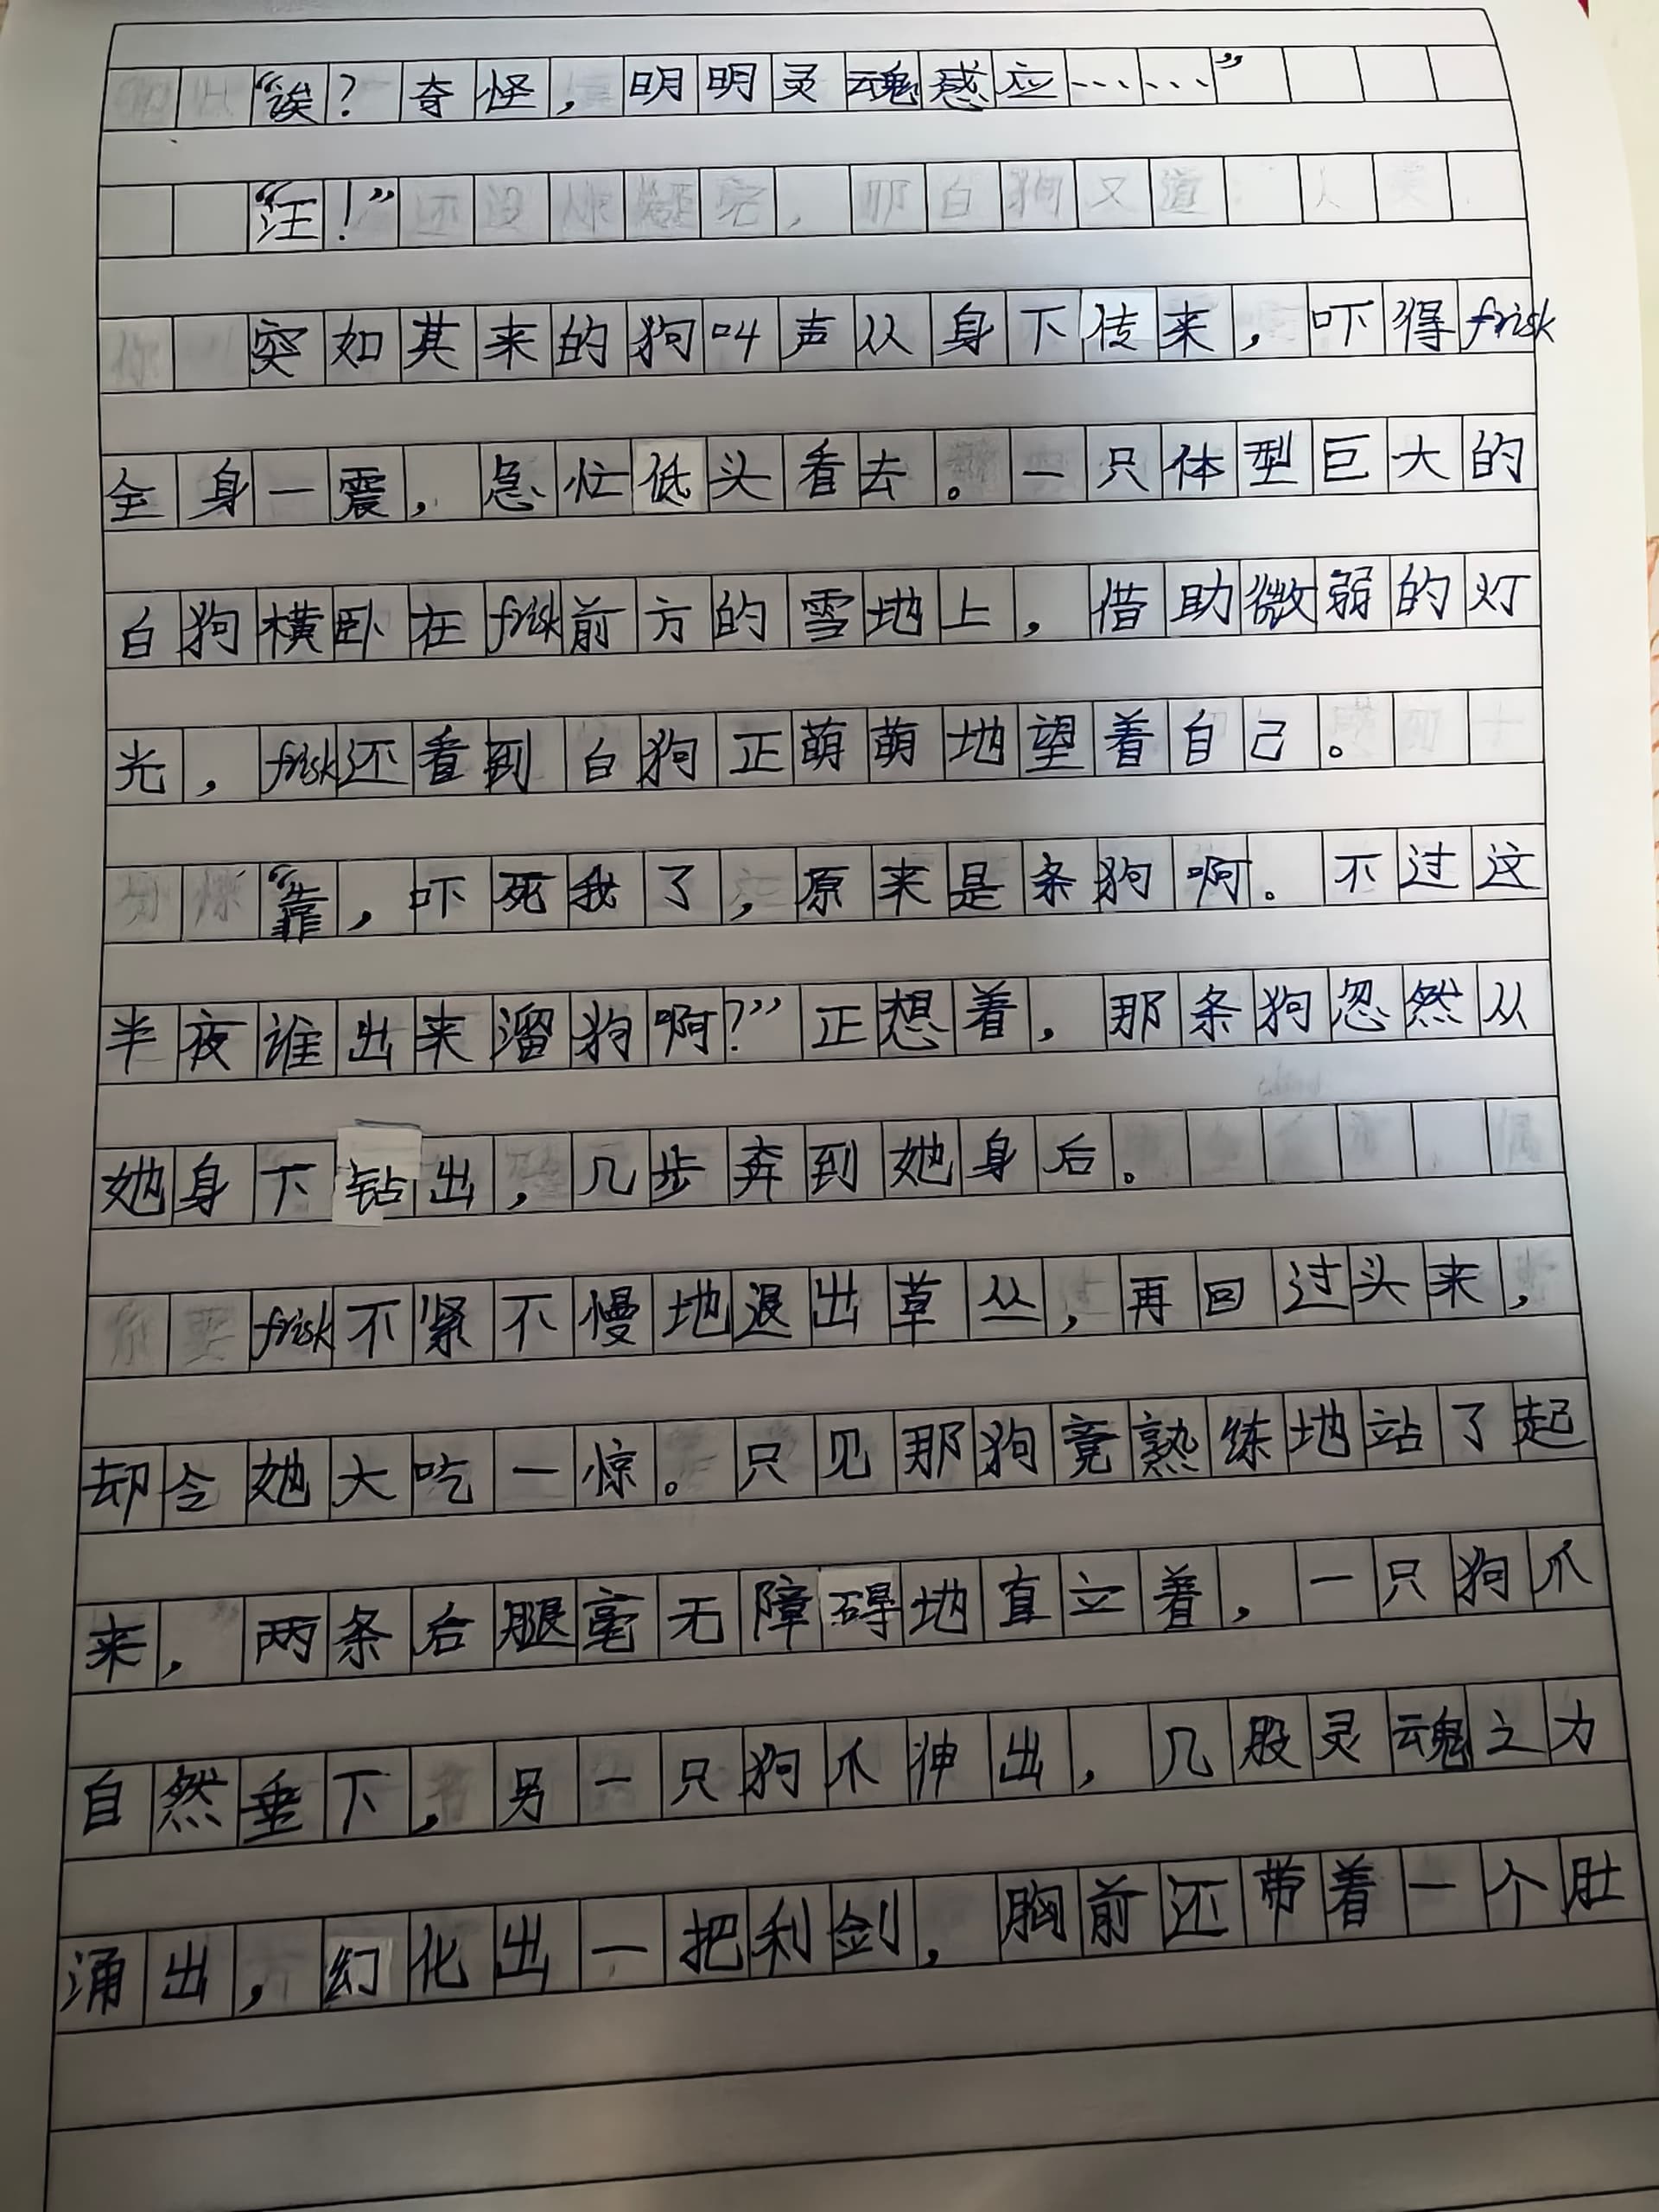 “诶？奇怪，明明灵魂感应……”
“汪！”
突如其来的狗叫声从身下传来，吓得frisk
全身一震，急忙低头看去。一只体型巨大的
白狗横卧在frisk前方的雪地上，借助微弱的灯
光，frisk还看到白狗正萌萌地望着自己。
“靠，吓死我了，原来是条狗啊。不过这
半夜谁出来溜狗啊？”正想着，那条狗忽然从
她身下钻出，几步奔到她身后。
frisk不紧不慢地退出草丛，再回过头来，
却令她大吃一惊。只见那狗竟熟练地站了起
来，两条后腿毫无障碍地直立着，一只狗爪
自然垂下，另一只狗爪伸出，几股灵魂之力
涌出，幻化出一把利剑，胸前还带着一个肚